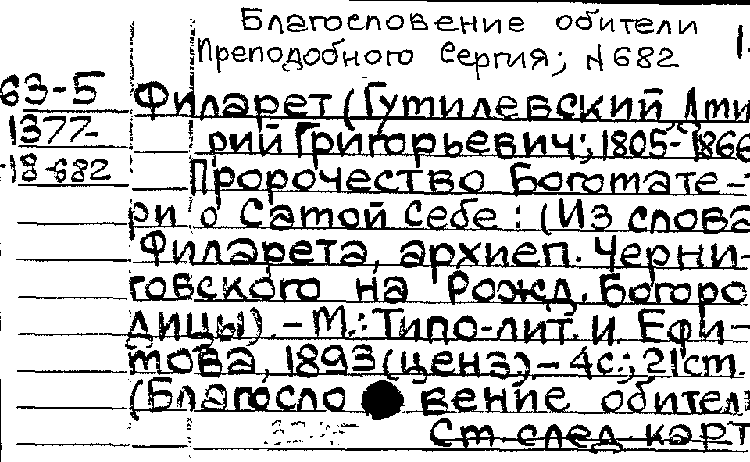 Благословение обители
Преподобного Сергия; N 682
63-5 Филарет (Гумилевский Дмит
1377- рий Григорьевич; 1805-1866
-18-682 Пророчество Богомате-
ри о Самой Себе: (Из слова
Филарета, архиеп. Черни-
говского на Рожд. Богоро
дицы). - М.: Типо-лит. И. Ефи-
мова, 1893 (ценз). - 4с.; 21см.
(Благословение обители
См. след. карт